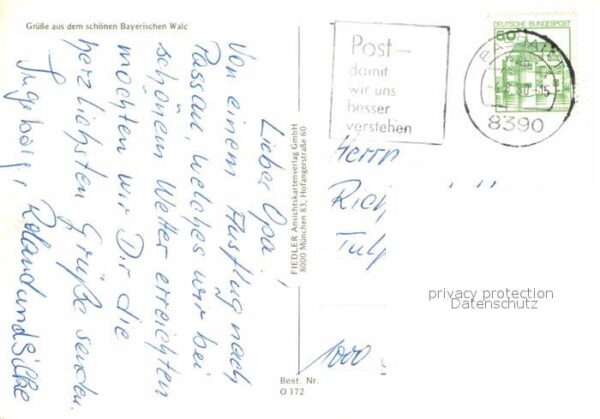 Grüße aus dem schönen Bayerischen Walc
Lieber Opa!
Von einem Ausflug nach
Passau, welches wir bei
schönem Wetter erreichten
möchten wir Dir die
herzlichsten Grüße senden.
Ingeborg, Roland und Silke
FIEDLER Ansichtskartenverlag GmbH
8000 München 83, Hofangerstraße 60
Best. Nr.
O 172
Post-
damit
wir uns
besser
verstehen
DEUTSCHE BUNDESPOST
50
PASSAU
8390
Herrn
Rich
Tulp
1000
privacy protection
Datenschutz